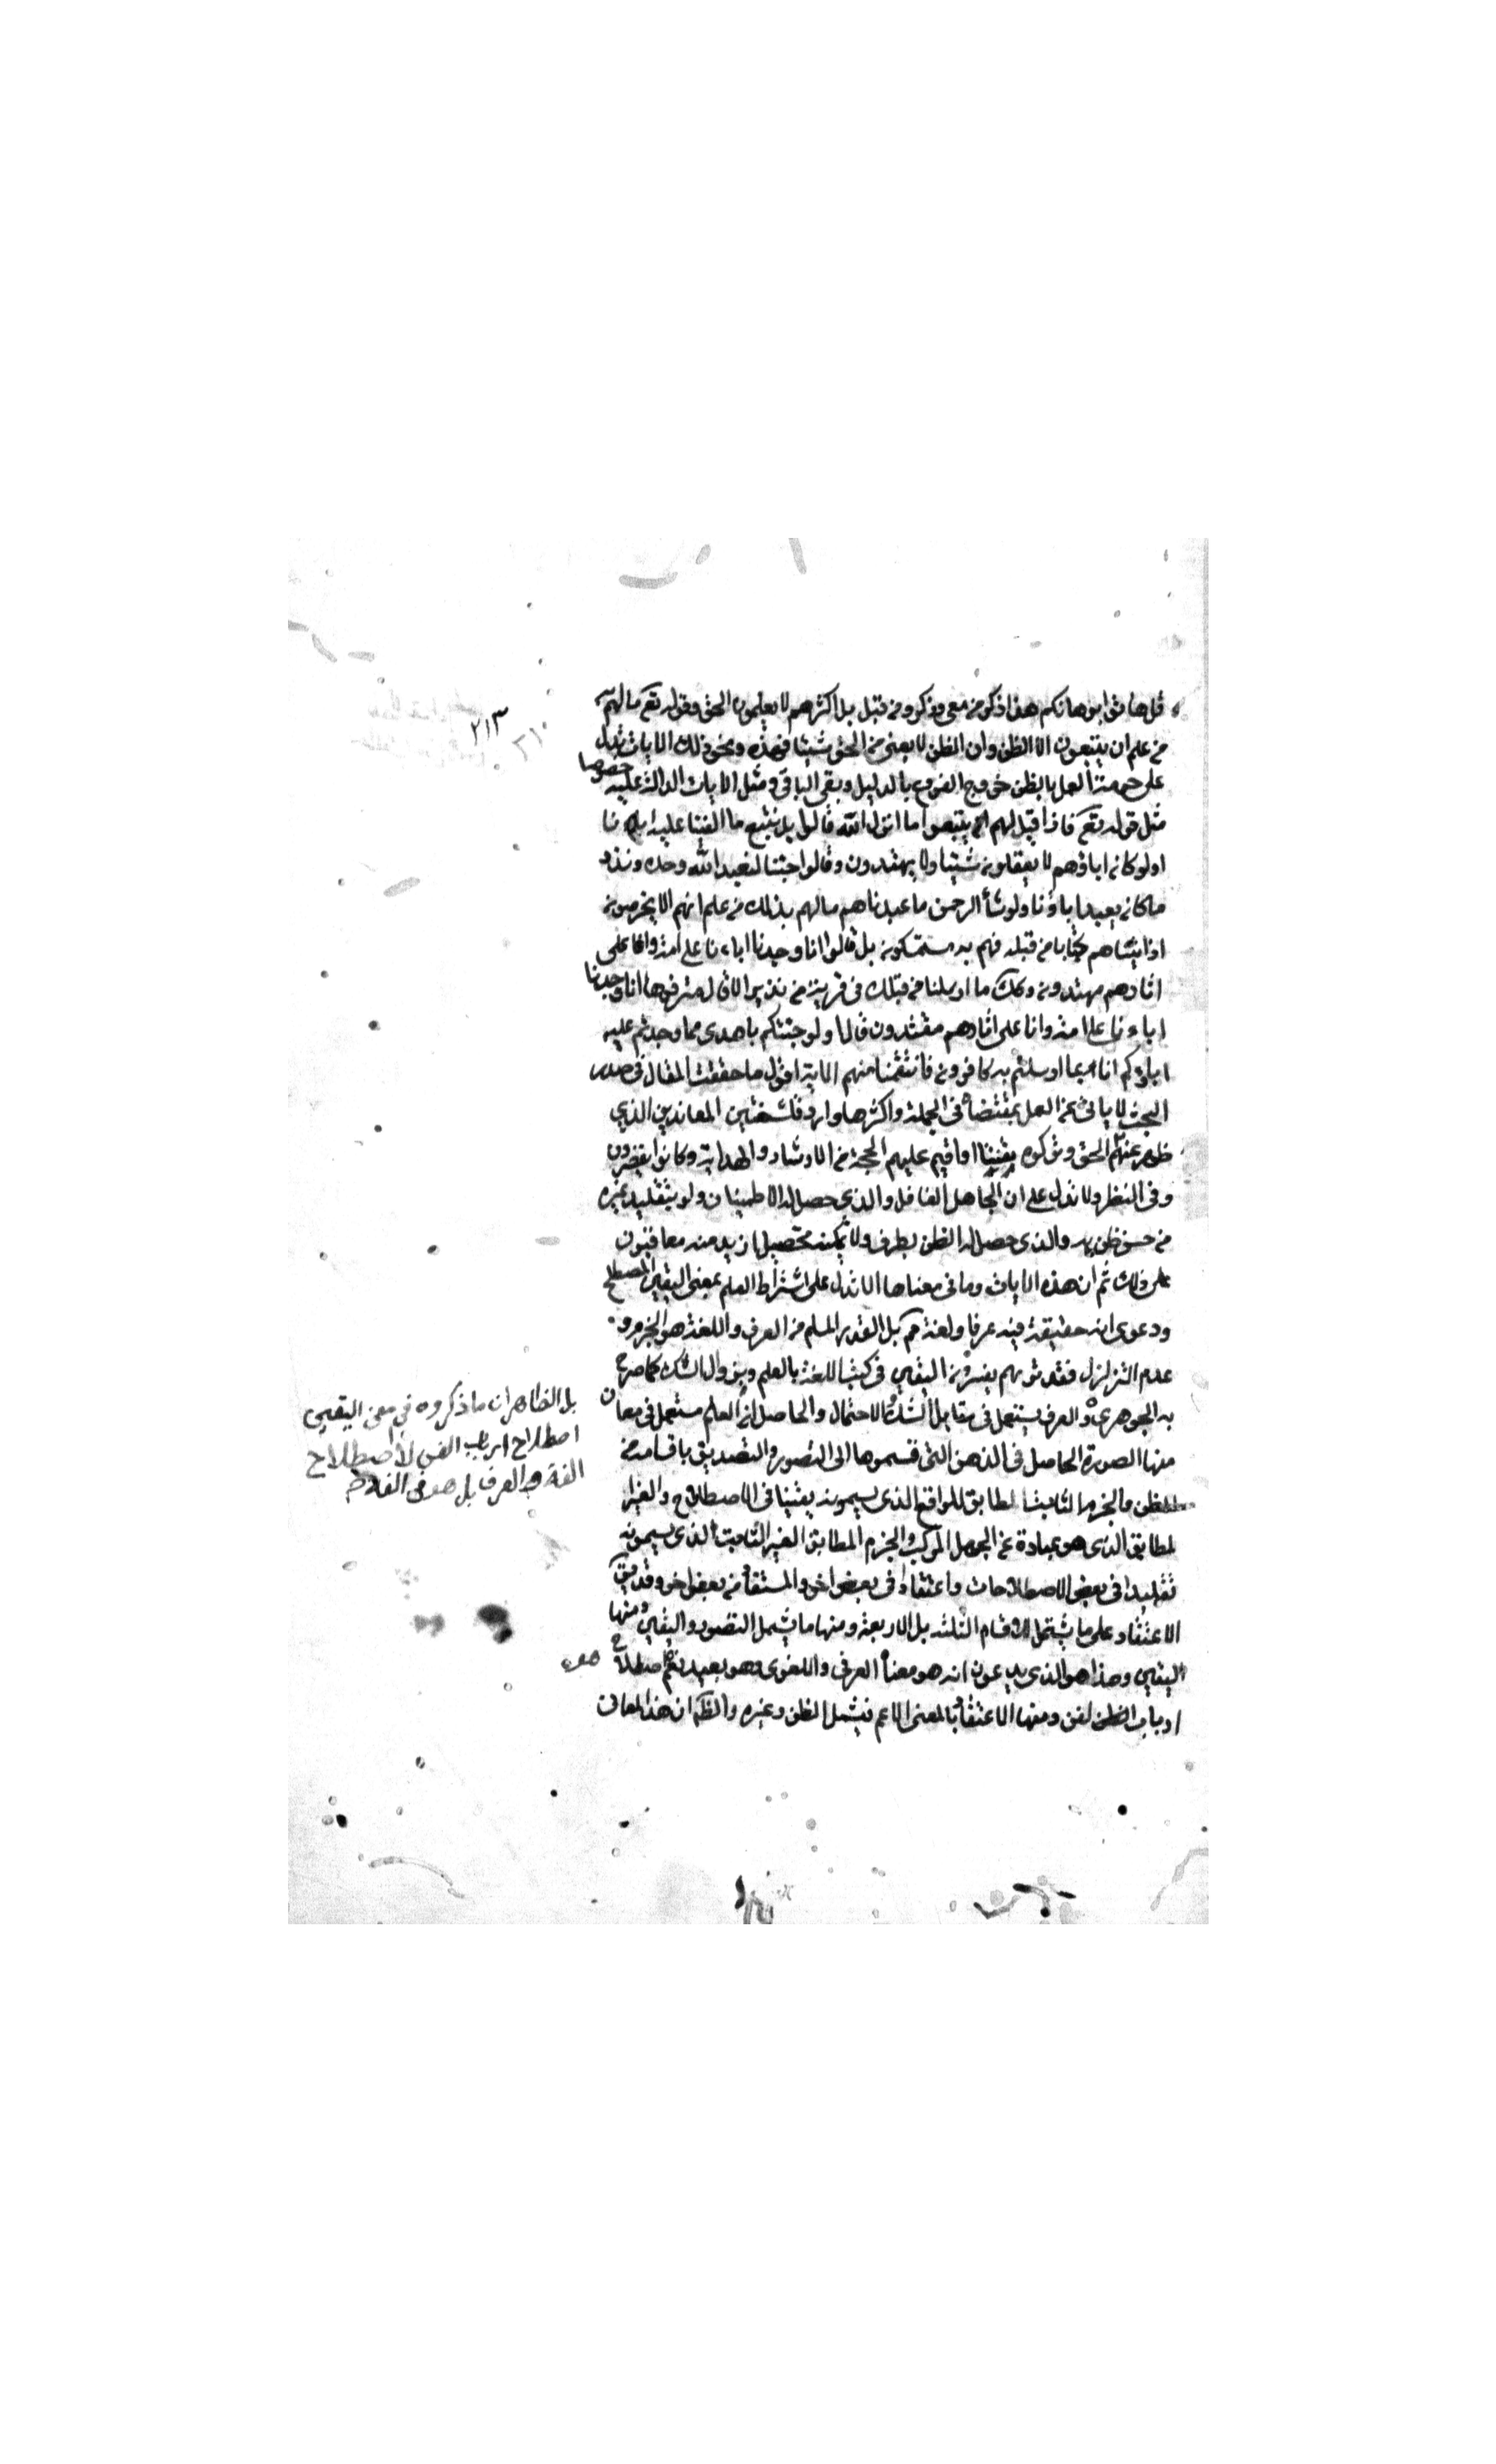 قل هاتوا برهانكم هذا ذكر من معي وذكر من قبل بل اكثرهم لا يعلمون الحق وقوله تعم مالهم به
من علم ان يتبعون الا الظن وان الظن لا يغني من الحق شيئا فهذه ونحو ذلك الايات تدل
على حرمة العمل بالظن خروج الفروع بالدليل وبقي الباقي ومثل الايات الدالة عليه خصوصا
مثل قوله تعم فاذا قيل لهم اتبعوا ما انزل الله قالوا بل نتبع ما الفينا عليه اباءنا
اولو كان اباؤهم لا يعقلون شيئا ولا يهتدون وقالوا اجئتنا لنعبد الله وحده ونذر
ما كان يعبد اباؤنا ولو شاء الرحمن ما عبدناهم مالهم بذلك من علم انهم الا يخرصون
اذ اتيناهم كتابا من قبله فهم به مستمسكون بل قالوا انا وجدنا اباءنا على امة وانا على
اثارهم مهتدون وكك ما ارسلنا من قبلك في قرية من نذير الا قال مترفوها انا وجدنا
اباءنا على امة وانا على اثارهم مقتدون قال اولو جئتكم باهدى مما وجدتم عليه
اباؤكم انا بما ارسلتم به كافرون فانتقمنا منهم الاية اقول ما حققت المقال في صدر
البحث لا يابى عن العمل بمقتضاه في الجملة واكثرها وارد في المعاندين الذين
ظهر عنهم الحق وتركوه يقينا او اقيم عليهم الحجة من الارشاد والهداية وكانوا يقصرون
وفي النظر ولا تدل على ان الجاهل الغافل والذي حصل له الاطمينان ولو بتقليد غيره
من حسن ظن به والذي حصل له الظن بطرف ولا يمكنه تحصيل ازيد منه معاقبون
على ذلك ثم ان هذه الايات وما في معناها لا تدل على اشتراط العلم بمعنى اليقين المصطلح
ودعوى انه حقيقة فيه عرفا ولغة مم بل القدر المسلم من العرف واللغة هو الجزم و
عدم التزلزل فقد تريهم يفسرون اليقين في كتب اللغة بالعلم وبزوال الشك كما صرح
به الجوهري والعرف يستعمل في مقابل الشك والاحتمال والحاصل ان العلم مستعمل في معان
منها الصورة الحاصل في الذهن التي قسموها الى التصور والتصديق باقسامه من
الظن والجزم الثابت المطابق للواقع الذي يسمونه يقينا في الاصطلاح والغير
المطابق الذي هو عبارة عن الجهل المركب والجزم المطابق الغير الثابت الذي يسمونه
تقليدا في بعض الاصطلاحات واعتقادا في بعض اخر والمستفاد من بعض اخر وقد يطلق
الاعتقاد على ما يشتمل الاقسام الثلثة بل الاربعة ومنها ما يشمل التصور واليقين ومنها
اليقين وهذا هو الذي يدعون انه هو معناه العرفي واللغوي وهو بعيد نعم اصطلاح
ارباب الفن ومنها الاعتقاد بالمعنى الاعم فيشمل الظن وغيره والظ ان هذا المعاني
٢١٣
بل الظاهر ان ما ذكروه في معنى اليقين
اصطلاح ارباب الفن لا اصطلاح
اللغة والعرف بل هو في